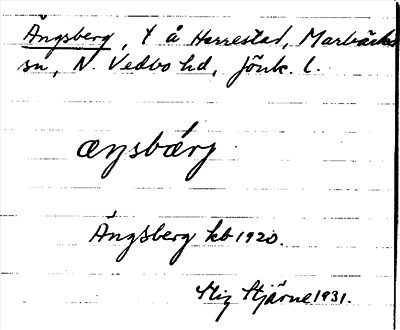 Ängsberg, t å Herrestad, Marbäcks
sn, N. Vedbo hd, Jönk. l.
æŋsbærj
Ängsberg kb 1920.
Stig Stjärne 1931.